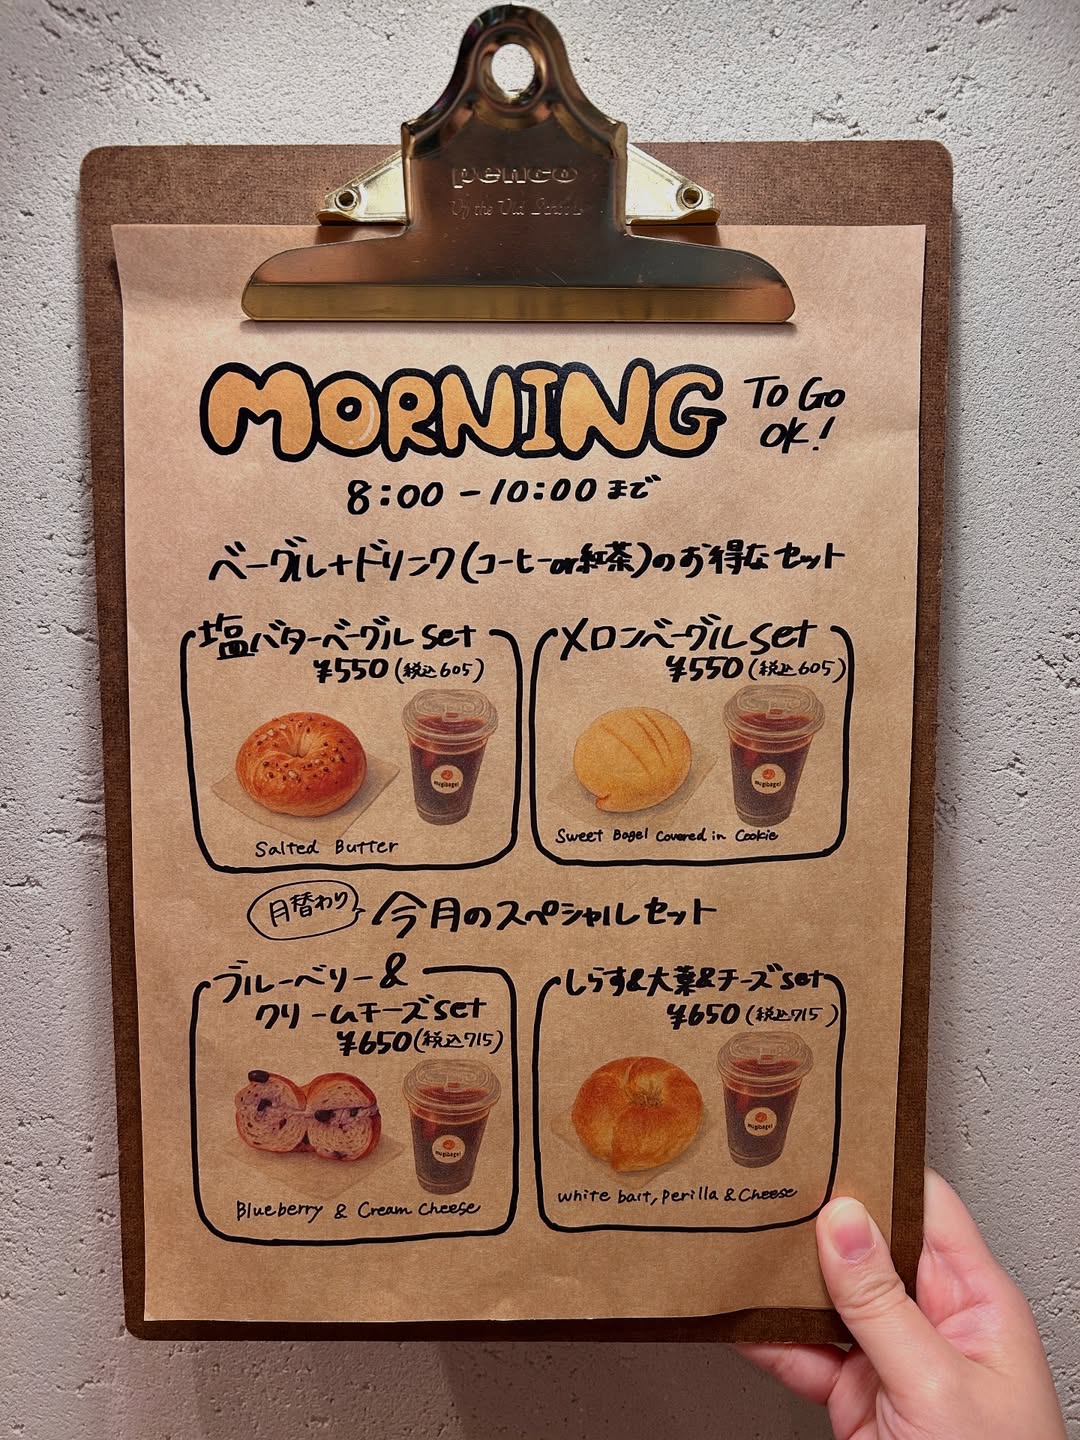 penco
MORNING
TO GO
OK!
8:00 - 10:00 まで
ベーグル+ドリンク(コーヒーor紅茶)のお得なセット
塩バターベーグル set
¥550 (税込605)
mugibagel
Salted Butter
メロンベーグル set
¥550 (税込605)
mugibagel
Sweet Bagel Covered in Cookie
月替わり
今月のスペシャルセット
ブルーベリー &
クリームチーズ set
¥650 (税込715)
mugibagel
Blueberry & Cream Cheese
しらす&大葉&チーズ set
¥650 (税込715)
mugibagel
white bait, perilla & Cheese